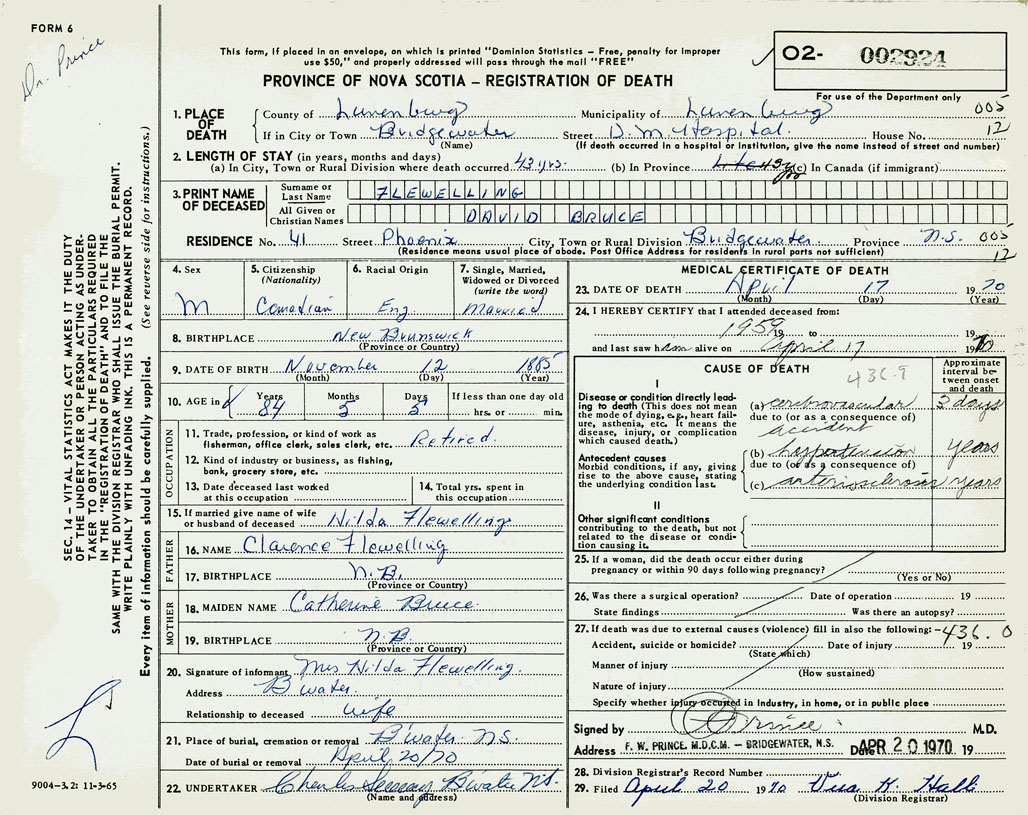 FORM 6
Dr. Prince
This form, if placed in an envelope, on which is printed "Dominion Statistics – Free, penalty for improper
use $50," and properly addressed will pass through the mail "FREE"
PROVINCE OF NOVA SCOTIA – REGISTRATION OF DEATH
O2- 002924
For use of the Department only
1. PLACE OF DEATH County of Lunenburg Municipality of Lunenburg 005
If in City or Town Bridgewater Street D. M. Hospital. House No. 12
(Name) (If death occurred in a hospital or institution, give the name instead of street and number)
2. LENGTH OF STAY (in years, months and days)
(a) In City, Town or Rural Division where death occurred 43 yrs. (b) In Province (c) In Canada (if immigrant)
3. PRINT NAME OF DECEASED Surname or Last Name FLEWELLING
All Given or Christian Names DAVID BRUCE
RESIDENCE No. 41 Street Phoenix City, Town or Rural Division Bridgewater Province N.S. 005
(Residence means usual place of abode. Post Office Address for residents in rural parts not sufficient) 12
4. Sex M
5. Citizenship (Nationality) Canadian
6. Racial Origin Eng
7. Single, Married, Widowed or Divorced (write the word) Married
8. BIRTHPLACE New Brunswick
(Province or Country)
9. DATE OF BIRTH November 12 1885
(Month) (Day) (Year)
10. AGE in Years 84 Months 5 Days 5 If less than one day old hrs. or min.
OCCUPATION
11. Trade, profession, or kind of work as fisherman, office clerk, sales clerk, etc. Retired.
12. Kind of industry or business, as fishing, bank, grocery store, etc.
13. Date deceased last worked at this occupation
14. Total yrs. spent in this occupation
15. If married give name of wife or husband of deceased Hilda Flewelling
FATHER
16. NAME Clarence Flewelling
17. BIRTHPLACE N.B.
(Province or Country)
MOTHER
18. MAIDEN NAME Catherine Bruce
19. BIRTHPLACE N.B.
(Province or Country)
20. Signature of informant Mrs Hilda Flewelling.
Address B'water.
Relationship to deceased wife
21. Place of burial, cremation or removal B'water N.S.
Date of burial or removal April 20/70
22. UNDERTAKER Charles B'water N.S.
(Name and address)
MEDICAL CERTIFICATE OF DEATH
23. DATE OF DEATH April 17 1970
(Month) (Day) (Year)
24. I HEREBY CERTIFY that I attended deceased from:
1959 19 to 19
and last saw him alive on April 17 1970
CAUSE OF DEATH 436.9
Approximate interval between onset and death
I
Disease or condition directly leading to death (This does not mean the mode of dying, e.g., heart failure, asthenia, etc. It means the disease, injury, or complication which caused death.)
(a) cerebrovascular accident 3 days
due to (or as a consequence of)
Antecedent causes
Morbid conditions, if any, giving rise to the above cause, stating the underlying condition last.
(b) hypertension years
due to (or as a consequence of)
(c) arteriosclerosis years
II
Other significant conditions contributing to the death, but not related to the disease or condition causing it.
25. If a woman, did the death occur either during pregnancy or within 90 days following pregnancy?
(Yes or No)
26. Was there a surgical operation? Date of operation 19
State findings Was there an autopsy?
27. If death was due to external causes (violence) fill in also the following: – 436.0
Accident, suicide or homicide? Date of injury 19
(State which)
Manner of injury
(How sustained)
Nature of injury
Specify whether injury occurred in industry, in home, or in public place
Signed by Prince M.D.
Address F. W. PRINCE. M.D.C.M. – BRIDGEWATER, N.S. Date APR 20 1970 19
28. Division Registrar's Record Number
29. Filed April 20 1970 K. Hall
(Division Registrar)
SEC. 14 – VITAL STATISTICS ACT MAKES IT THE DUTY
OF THE UNDERTAKER OR PERSON ACTING AS UNDER-
TAKER TO OBTAIN ALL THE PARTICULARS REQUIRED
IN THE "REGISTRATION OF DEATH" AND TO FILE THE
SAME WITH THE DIVISION REGISTRAR WHO SHALL ISSUE THE BURIAL PERMIT.
WRITE PLAINLY WITH UNFADING INK. THIS IS A PERMANENT RECORD.
Every item of information should be carefully supplied. (See reverse side for instructions.)
9004-3.2: 11-3-65